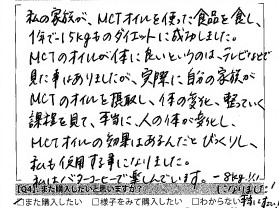 私の家族が、MCTオイルを使った食品を食し、
1年で-15kgものダイエットに成功しました。
MCTのオイルが体に良いというのは、テレビなどで
見た事はありましたが、実際に自分の家族が
MCTのオイルを摂取し、体の変化、整っていく
課程を見て、本当に、人の体が変化し、
MCTオイルの効果はあるんだとびっくりし、
私も使用する事になりました。
私はバターコーヒーで楽しんでいます。-8kg!!
【Q4】また購入したいと思いますか?
□また購入したい □様子をみて購入したい □わからない
になりました